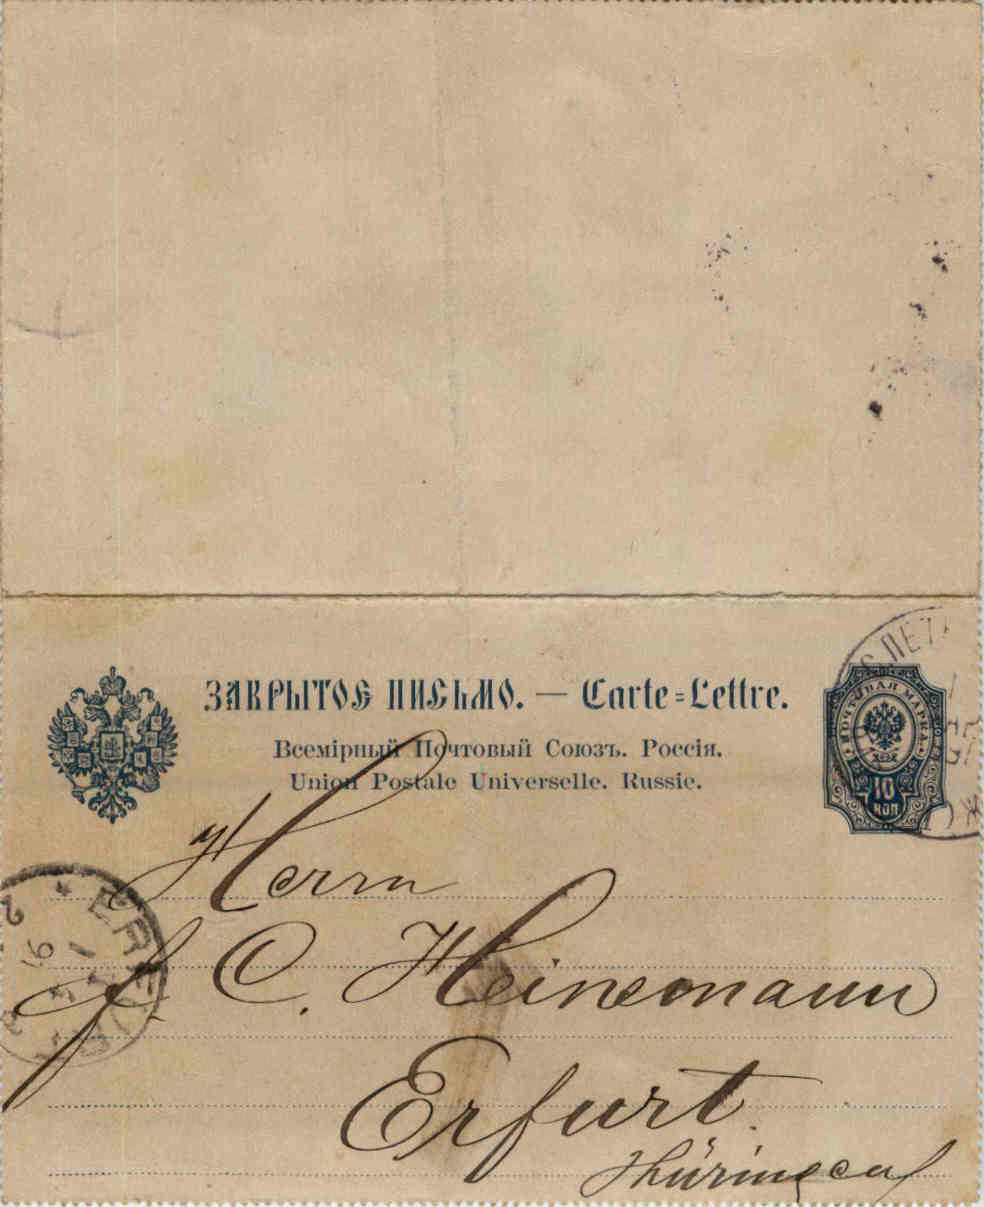 ЗАКРЫТОЕ ПИСЬМО. — Carte=Lettre.
Всемірный Почтовый Союзъ. Россія.
Union Postale Universelle. Russie.
ПОЧТОВАЯ МАРКА.
10
КОП
С. ПЕТ
Herrn
J. C. Heinemann
Erfurt.
Thüringen
ERFURT